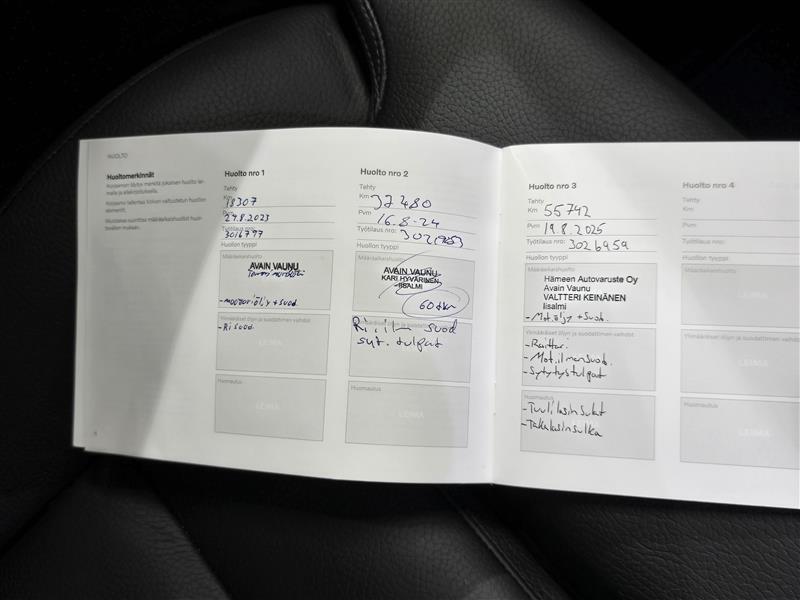 HUOLTO
Huoltomerkinnät
Huolto nro 1
Tehty
Km 18307
Pvm 29.8.2023
Työtilaus nro: 3016797
Huollon tyyppi
Määräaikaishuolto
AVAIN VAUNU
-moottoriöljy + suod.
Ylimääräiset öljyn ja suodattimen vaihdot
-Ri suod.
Huomautus
LEIMA
Huolto nro 2
Tehty
Km 37480
Pvm 16.8-24
Työtilaus nro:
Huollon tyyppi
Määräaikaishuolto
AVAIN VAUNU
KARI HYVÄRINEN
IISALMI
60tkm
Ri, ilm suod
syt. tulpat
Huomautus
LEIMA
Huolto nro 3
Tehty
Km 55742
Pvm 19.8.2025
Työtilaus nro: 3026959
Huollon tyyppi
Määräaikaishuolto
Hämeen Autovaruste Oy
Avain Vaunu
VALTTERI KEINÄNEN
Iisalmi
-Mot.öljy + Suod.
Ylimääräiset öljyn ja suodattimen vaihdot
-Raitisi.
-Mot.ilmansuod.
-Sytytystulpat
Huomautus
-Tuulilasinsulat
-Takalasinsulka
Huolto nro 4
Tehty
Km
Pvm
Työtilaus nro:
Huollon tyyppi
Määräaikaishuolto
LEIMA
Ylimääräiset öljyn ja suodattimen vaihdot
LEIMA
Huomautus
LEIMA